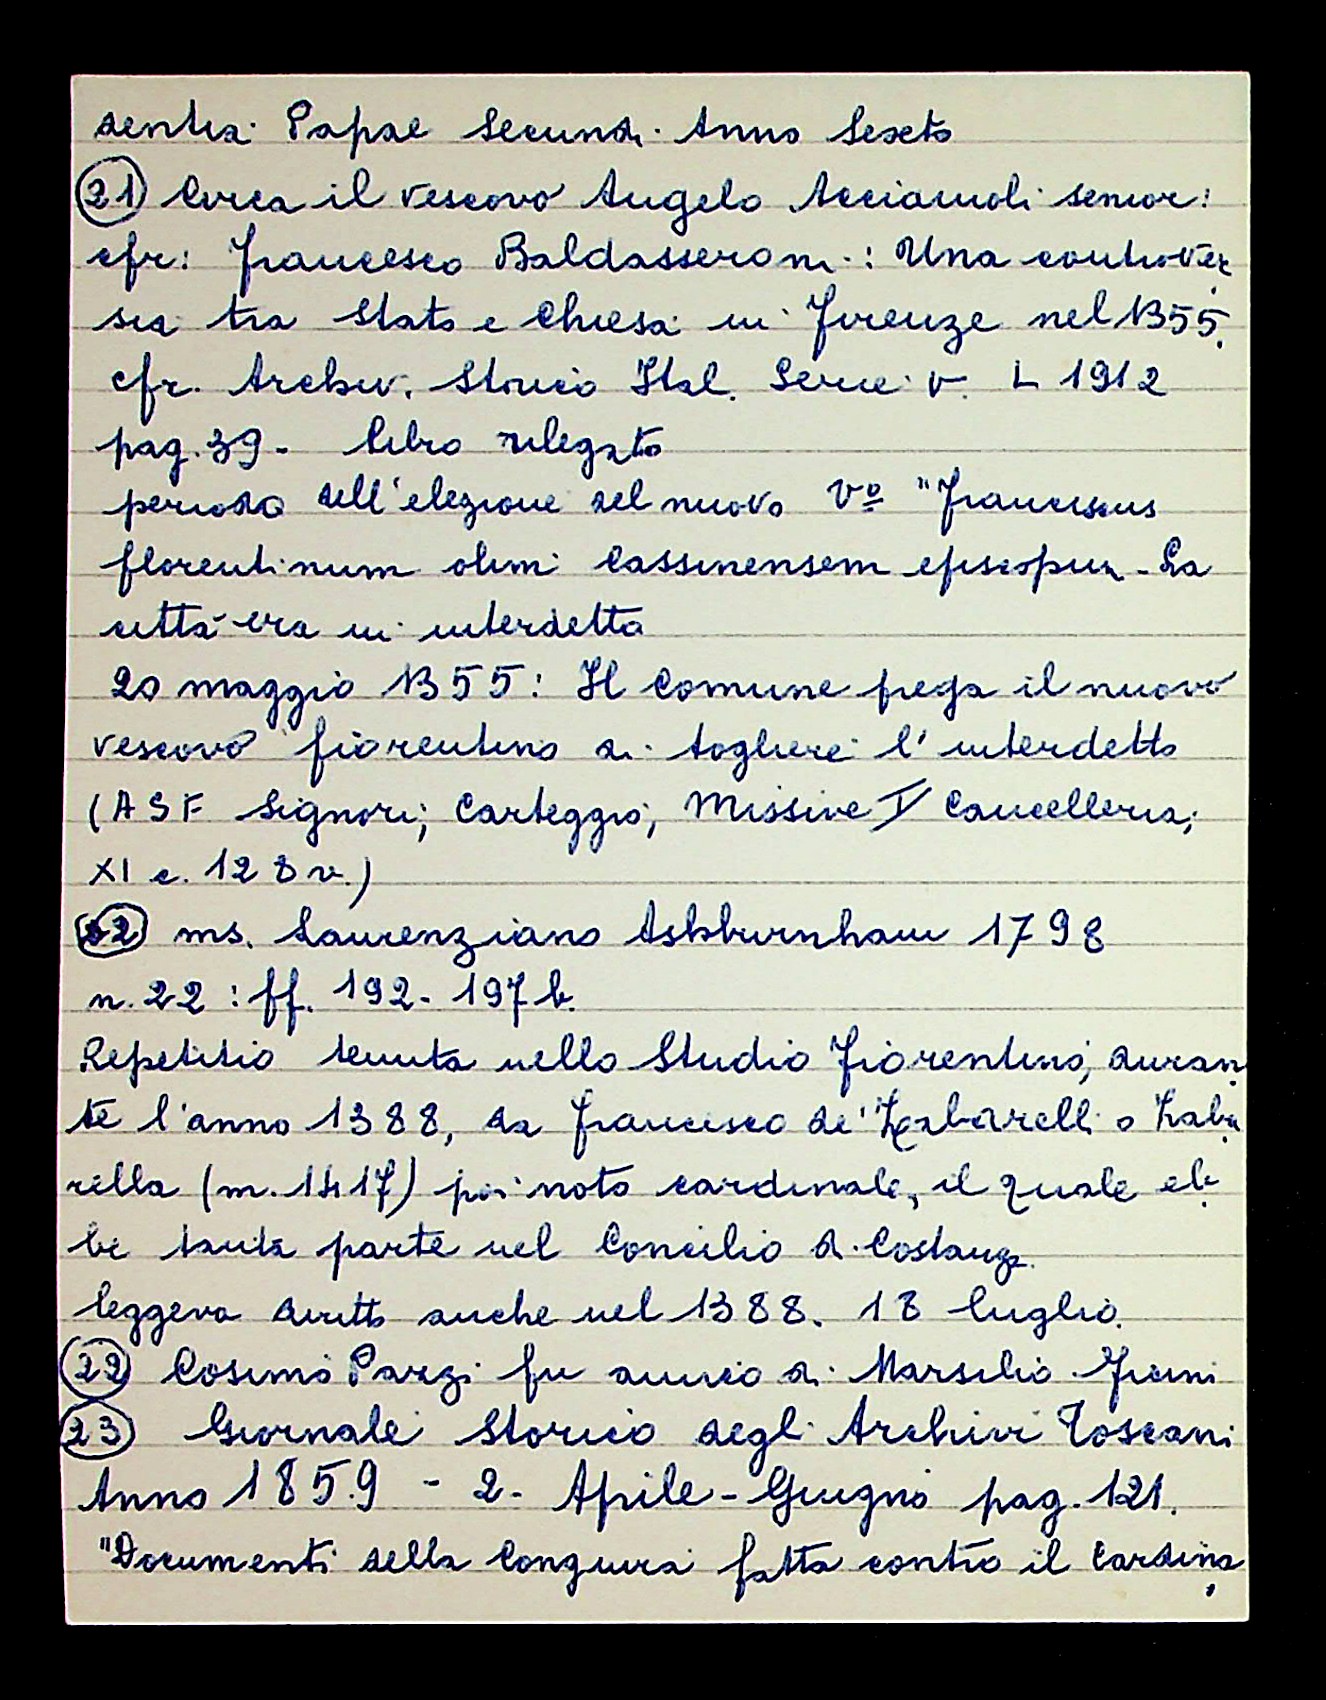 dentia Papae Secundi Anno Sexto
21 Circa il vescovo Angelo Acciaiuoli senior:
cfr: Francesco Baldasseroni: Una controver
sia tra Stato e Chiesa in Firenze nel 1355.
cfr. Archiv. Storico Ital. Serie V. L 1912
pag. 39 - libro rilegato
periodo dell'elezione del nuovo Vº "Franciscus
florentinum olim Cassinensem episcopum - La
città era in interdetto
20 maggio 1355: Il Comune prega il nuovo
vescovo fiorentino di togliere l'interdetto
(ASF Signori; Carteggio; Missive I Cancelleria;
XI c. 128 v.)
22 ms. Laurenziano Ashburnham 1798
n. 22: ff. 192 - 197 b.
Repetitio tenuta nello Studio Fiorentino, duran
te l'anno 1388, da Francesco de' Zabarelli o Zaba
rella (m. 1417) poi noto cardinale, il quale eb
be tanta parte nel Concilio di Costanza.
leggeva diritto anche nel 1388. 18 luglio.
22 Cosimo Pazzi fu amico di Marsilio Ficini
23 Giornale Storico degli Archivi Toscani
Anno 1859 - 2 - Aprile - Giugno pag. 121.
"Documenti della Congiura fatta contro il Cardina